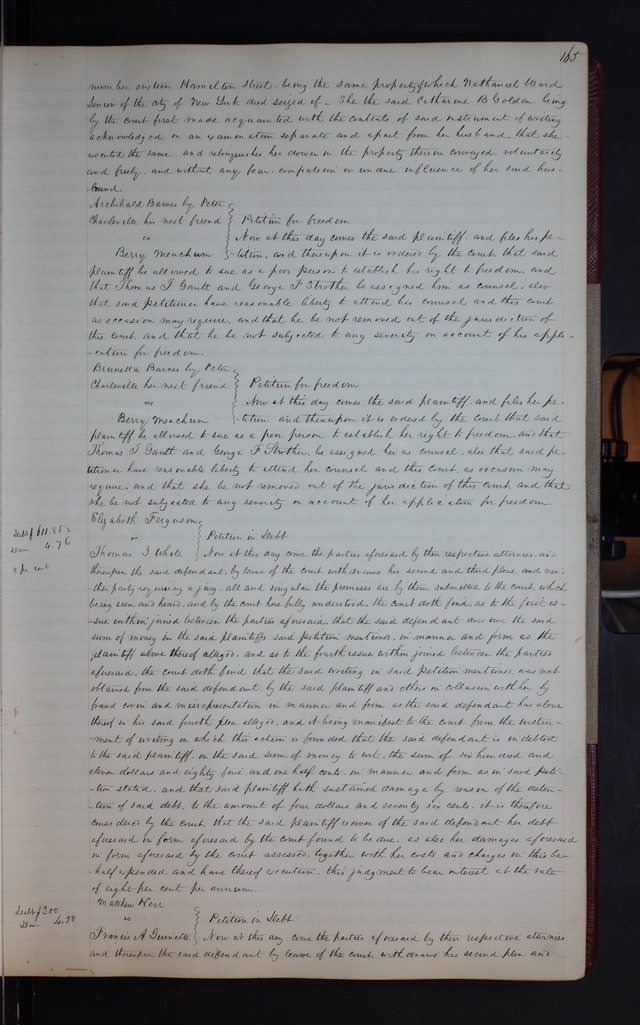 165
number sixteen Hamilton Street. being the same property of which Nathaniel Ward
Senior of the city of New York died seized of - She the said Catharine B Goldon being
by the court first made acquainted with the contents of said instrument of writing
acknowledged on an examination separate and apart from her husband. that she
executed the same. and relinquishes her dower in the property therein conveyed. voluntarily
and freely. and without any fear. compulsion or undue influence of her said hus-
band.
Archibald Barnes by Peter
Charleville his next friend } Petition for freedom
vs Now at this day comes the said plaintiff. and files his pe-
Berry Meachum -tition. and thereupon it is ordered by the court. that said
plaintiff be allowed to sue as a poor person to establish his right to freedom. and
that Thomas T Gantt and George F Strother be assigned him as counsel. also
that said petitioner have reasonable liberty to attend his counsel and this court
as occasion may require. and that he be not removed out of the jurisdiction of
this court. and that he be not subjected to any severity on account of his appli-
-cation for freedom.
Brunetta Barnes by Peter
Charleville her next friend } Petition for freedom
vs Now at this day comes the said plaintiff. and files her pe-
Berry Meachum -tition. and thereupon it is ordered by the court. that said
plaintiff be allowed to sue as a poor person to establish her right to freedom. and that
Thomas T Gantt and George F Strother. be assigned her as counsel. also that said pe-
titioner have reasonable liberty to attend her counsel and this court. as occasion may
require. and that she be not removed out of the jurisdiction of this court and that
she be not subjected to any severity on account of her application for freedom.
Elizabeth Ferguson
vs } Petition in Debt
Debt $611.85½
Dam 4.76
8 per cent
Thomas J White Now at this day come the parties aforesaid by their respective attornies. and
thereupon the said defendant. by leave of the court withdraws his second and third pleas. and nei-
ther party requiring a jury. all and singular the premises are by them submitted to the court. which
being seen and heard. and by the court here fully understood. the court doth find. as to the first is-
sue within joined between the parties aforesaid. that the said defendant does owe the said
sum of money in the said plaintiffs said petition mentioned. in manner and form as the
plaintiff above thereof alleged. and as to the fourth issue within joined between the parties
aforesaid. the court doth find that the said writing in said Petition mentioned. was not
obtained from the said defendant. by the said plaintiff and others in collusion with her by
fraud covin and misrepresentation in manner and form as the said defendant has above
thereof in his said fourth plea alleged. and it being manifest to the court from the instru-
ment of writing on which this action is founded that the said defendant is indebted
to the said plaintiff. in the said sum of money to wit. the sum of six hundred and
eleven dollars and eighty five and one half cents. in manner and form as in said Peti-
-tion stated. and that said plaintiff hath sustained damage by reason of the deten-
-tion of said debt. to the amount of four dollars and seventy six cents. it is therefore
considered by the court. that the said plaintiff recover of the said defendant her debt
aforesaid in form aforesaid by the court found to be due. as also her damages aforesaid
in form aforesaid by the court assessed. together with her costs and charges in this be-
half expended. and have thereof execution. this judgment to bear interest at the rate
of eight per cent per annum.
Matthew Kerr
Debt $300
Dam 4.50
vs } Petition in Debt
Francis A Quinette Now at this day come the parties aforesaid by their respective attornies
and thereupon the said defendant by leave of the court. withdraws his second plea. and